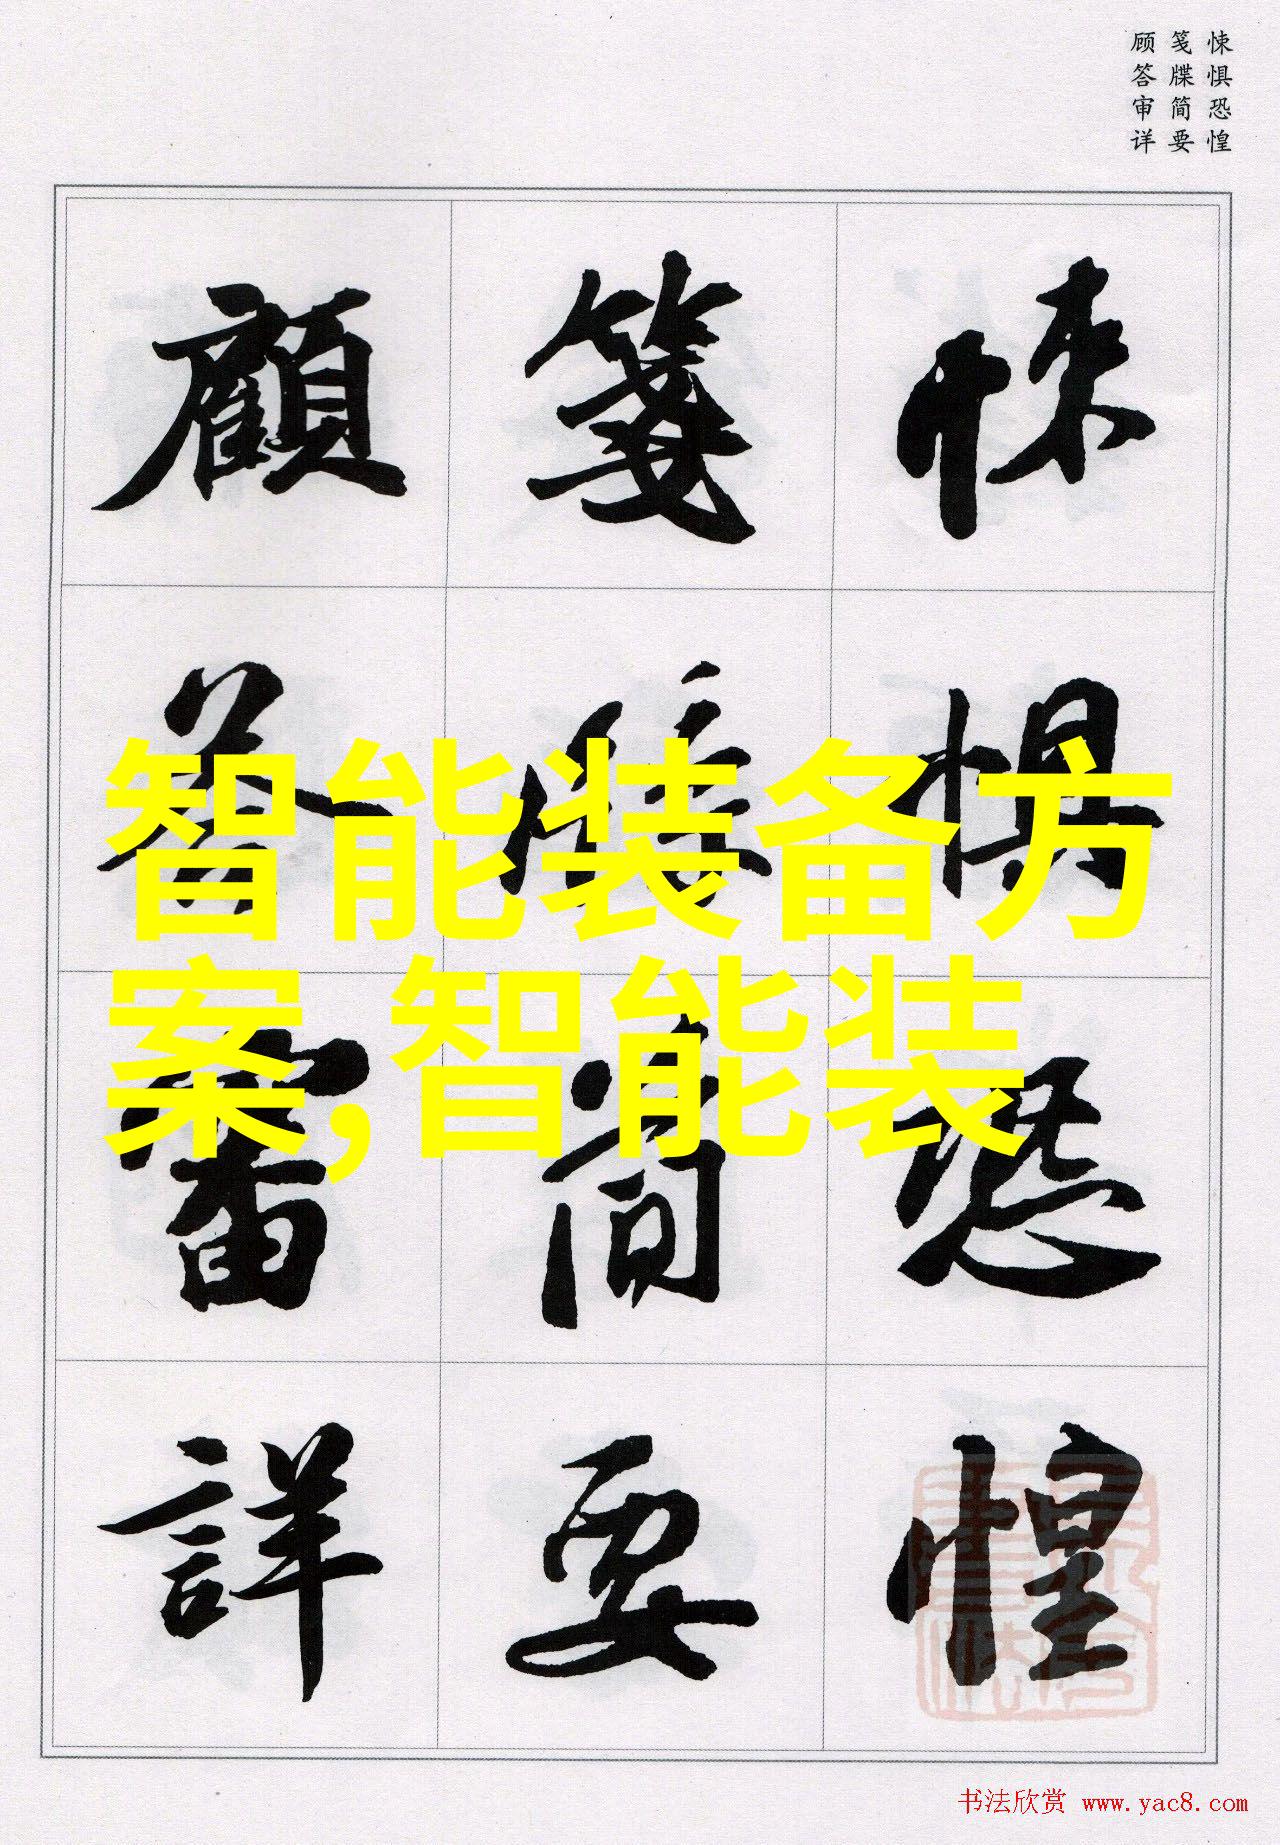 悚惧恐惶
笺牒简要
顾答审详
悚懼恐惶
箋牒简要
顧答審詳
智能装备方
案,智能装
书法欣赏 www.yac8.com